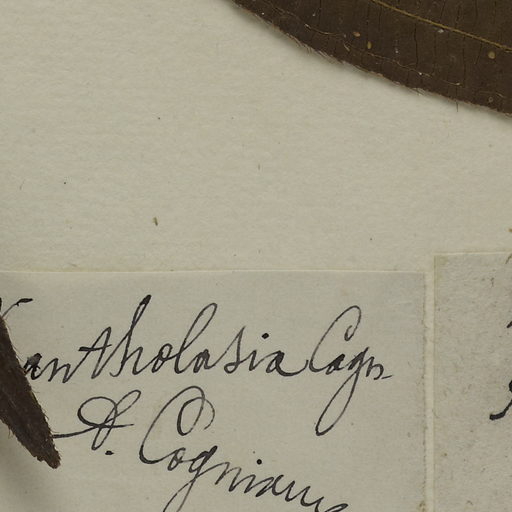 Xantholasia Cogn.
A. Cogniaux